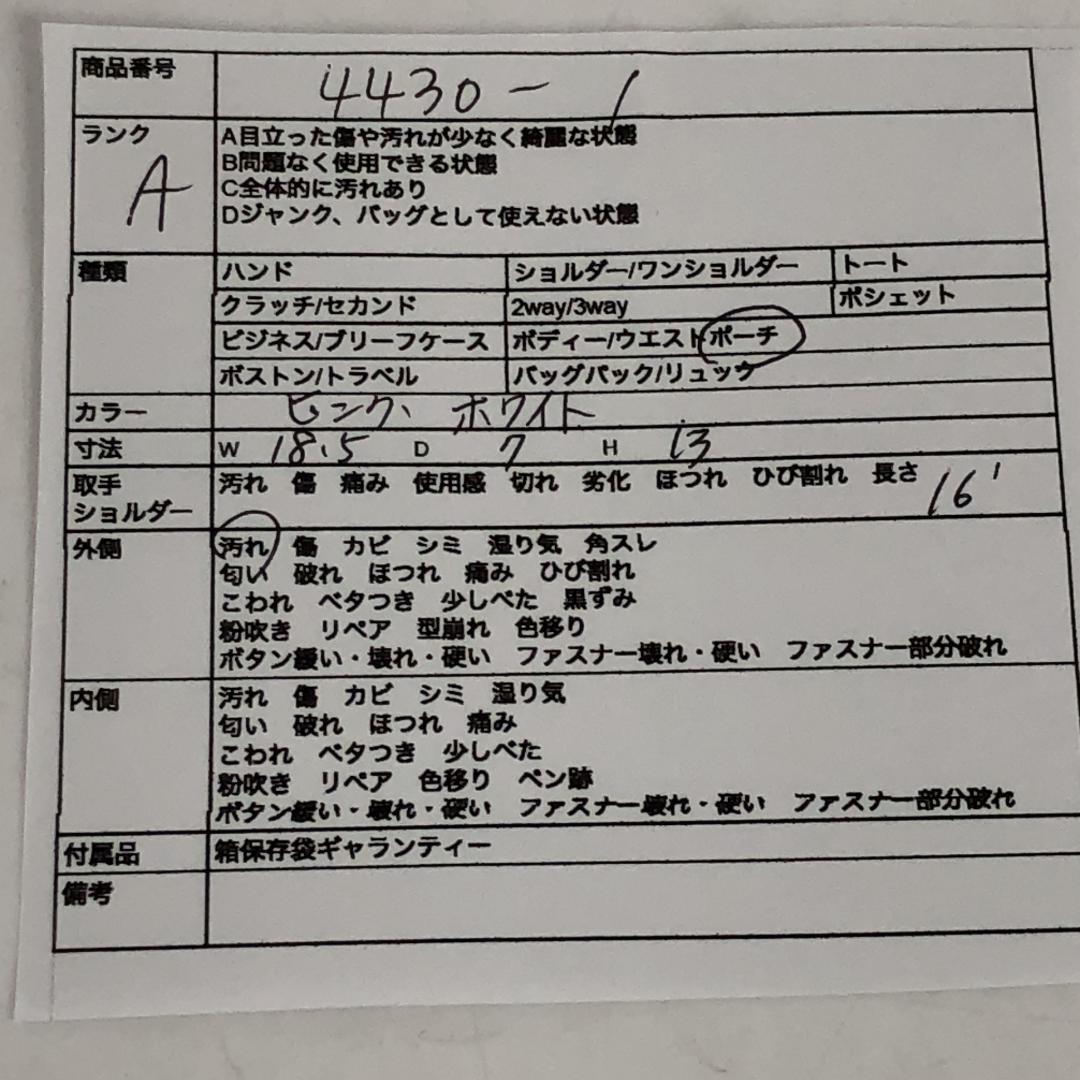 商品番号 4430-1
ランク A
A目立った傷や汚れが少なく綺麗な状態
B問題なく使用できる状態
C全体的に汚れあり
Dジャンク、バッグとして使えない状態
種類 ハンド ショルダー/ワンショルダー トート
クラッチ/セカンド 2way/3way ポシェット
ビジネス/ブリーフケース ボディー/ウエストポーチ
ボストン/トラベル バッグパック/リュック
カラー ピンク、ホワイト
寸法 W 18.5 D 7 H 13
取手 汚れ 傷 痛み 使用感 切れ 劣化 ほつれ ひび割れ 長さ 16
ショルダー
外側 汚れ 傷 カビ シミ 湿り気 角スレ
匂い 破れ ほつれ 痛み ひび割れ
こわれ ベタつき 少しべた 黒ずみ
粉吹き リペア 型崩れ 色移り
ボタン緩い・壊れ・硬い ファスナー壊れ・硬い ファスナー部分破れ
内側 汚れ 傷 カビ シミ 湿り気
匂い 破れ ほつれ 痛み
こわれ ベタつき 少しべた
粉吹き リペア 色移り ペン跡
ボタン緩い・壊れ・硬い ファスナー壊れ・硬い ファスナー部分破れ
付属品 箱保存袋ギャランティー
備考